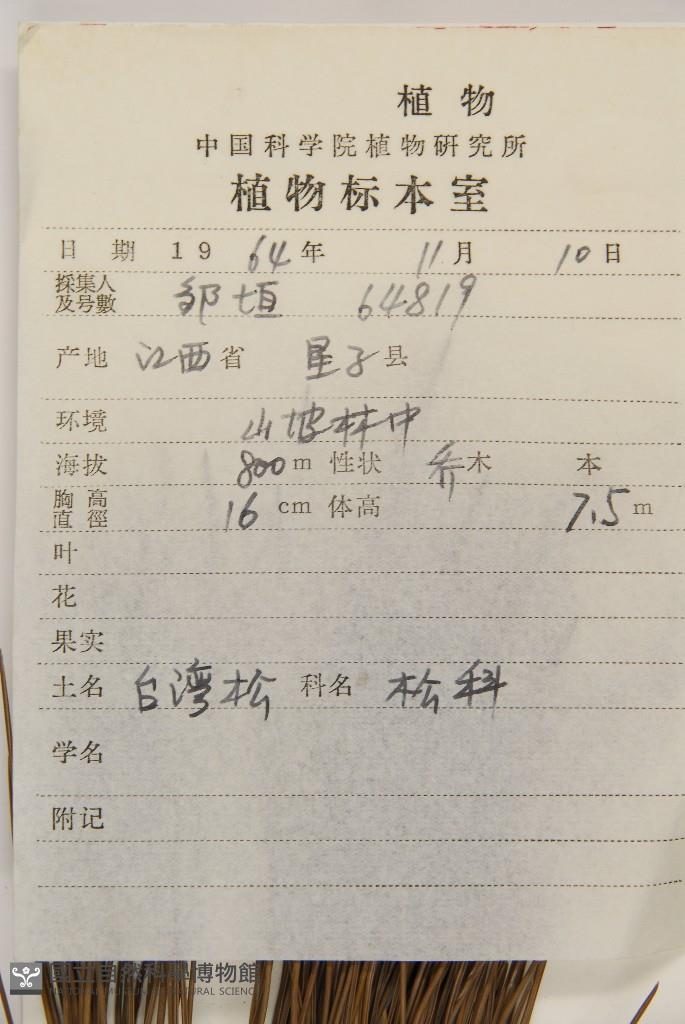 植物
中国科学院植物研究所
植物标本室
日期 1964年 11月 10日
採集人
及号數 邹垣 64819
产地 江西省 星子县
环境 山坡林中
海拔 800m 性状 乔木 本
胸高
直徑 16cm 体高 7.5m
叶
花
果实
土名 台湾松 科名 松科
学名
附记
國立自然科學博物館
NATIONAL MUSEUM OF NATURAL SCIENCE